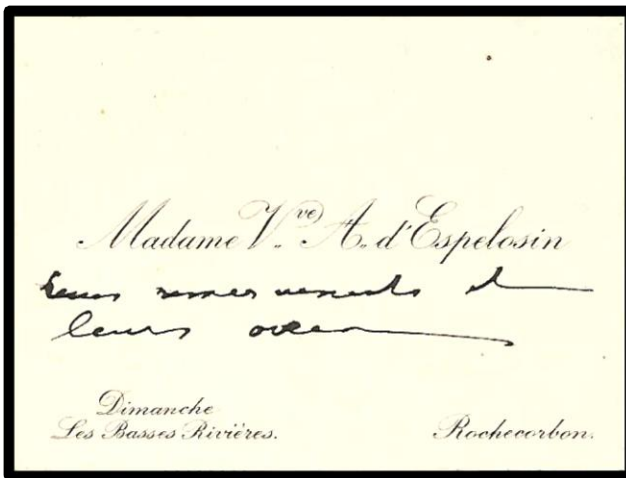 Madame Vve A. d'Espelosin
leurs remerciements et
leurs
Dimanche
Les Basses Rivières. Rochecorbon.